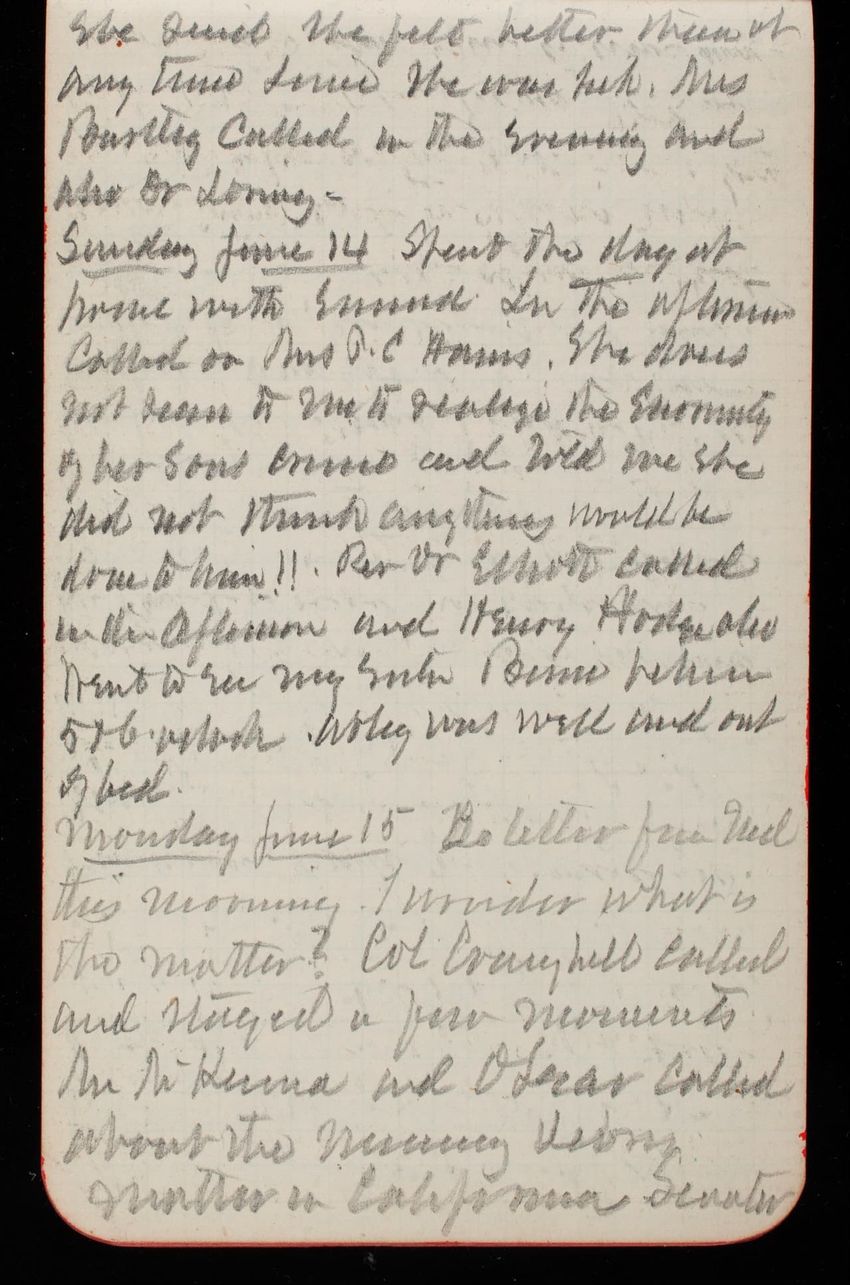 She said she felt better than at
any time since she was sick. Mrs
Bartley Called in the Evening and
also Dr Loring-
Sunday June 14 Spent the day at
home with Emma In the afternoon
Called on Mrs Harris. She does
not seem to me to realize the Enormity
of her Sons crime and told me she
did not think anything would be
done to him!!. Rev Dr Elliott called
in the Afternoon and Henry Hodge also
Went to See my Sister between
5 & 6 oclock. was well and out
of bed.
Monday June 15 No letter from Ned
this morning. I wonder what is
the matter? Col called
and stayed a few moments
Mr McKenna and called
about the
matter in California Senator